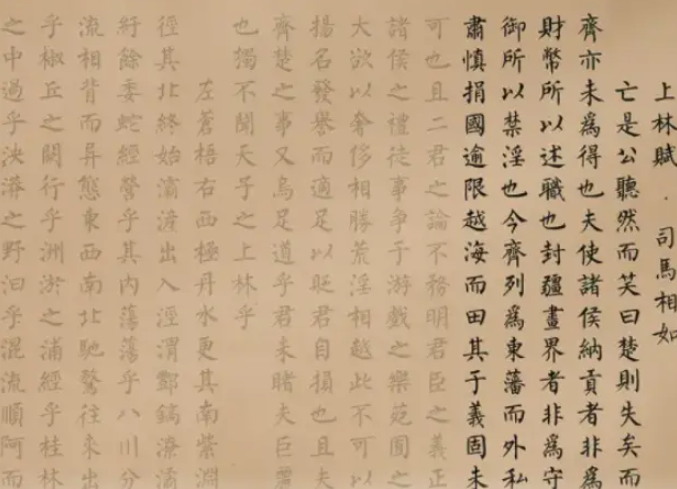 上林賦 · 司馬相如
亡是公聽然而笑曰楚則失矣而
齊亦未爲得也夫使諸侯納貢者非爲
財幣所以述職也封疆畫界者非爲守
御所以禁淫也今齊列爲東藩而外私
肅慎捐國逾限越海而田其于義固未
可也且二君之論不務明君臣之義正
諸侯之禮徒事爭于游戲之樂苑囿之
大欲以奢侈相勝荒淫相越此不可以
揚名發舉而適足以貶君自損也且夫
齊楚之事又烏足道乎君未睹夫巨麗
也獨不聞天子之上林乎
左蒼梧右西極丹水更其南紫淵
徑其北終始灞滻出入涇渭酆鎬潦潏
紆餘委蛇經營乎其內蕩蕩乎八川分
流相背而异態東西南北馳騖往來出
乎椒丘之闕行乎洲淤之浦經乎桂林
之中過乎泱漭之野汩乎混流順阿而